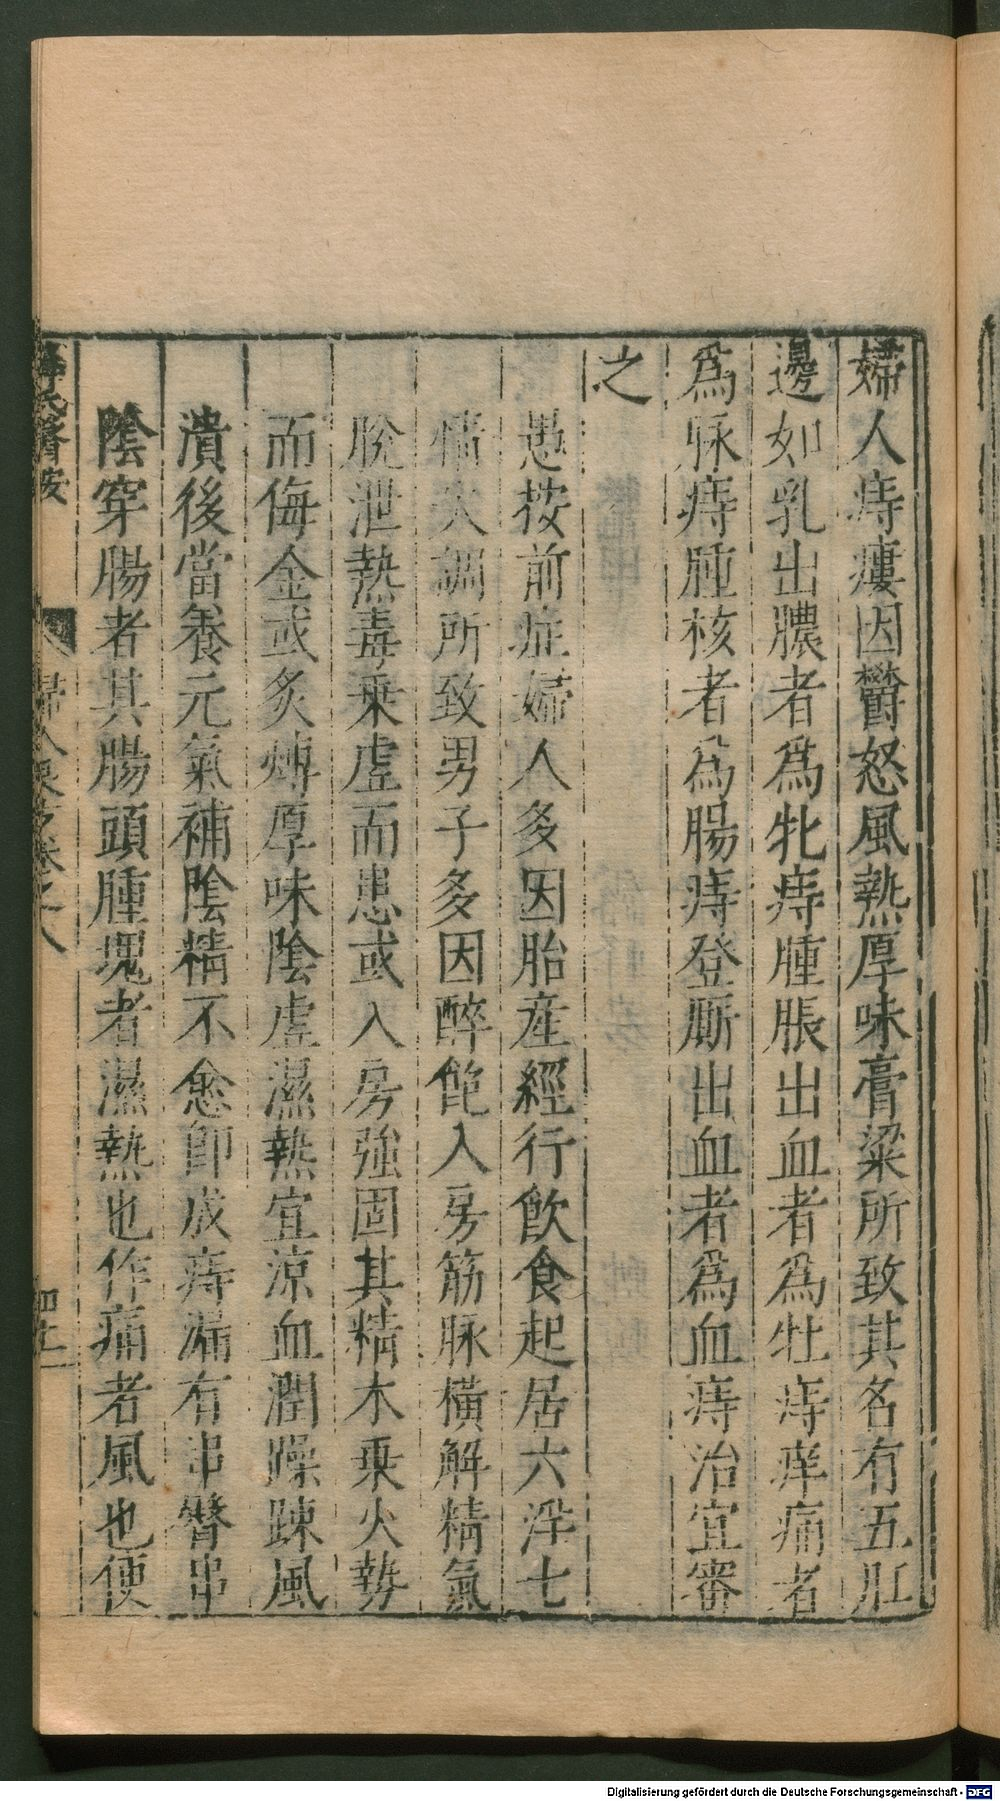 婦人痔瘻因鬱怒風熱厚味膏粱所致其名有五肛
邊如乳出膿者爲牝痔腫脹出血者爲牡痔痒痛者
爲脉痔腫核者爲腸痔登厠出血者爲血痔治宜審
之
愚按前症婦人多因胎産經行飲食起居六淫七
情失調所致男子多因醉飽入房筋脉橫解精氣
脫泄熱毒乗虛而患或入房強固其精木乗火勢
而侮金或炙煿厚味陰虛濕熱宜涼血潤燥踈風
潰後當養元氣補陰精不愈卽成痔漏有串臀串
陰穿腸者其腸頭腫塊者濕熱也作痛者風也便
薛氏醫按 婦人良方卷之八
Digitalisierung gefördert durch die Deutsche Forschungsgemeinschaft - DFG